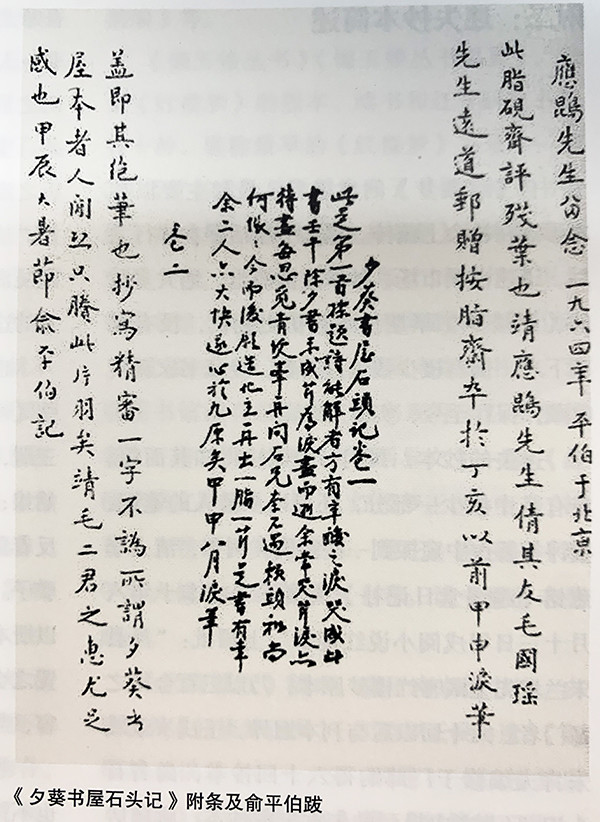 應鵾先生留念 一九六四年 平伯于北京
此脂硯齋評殘葉也靖應鵾先生倩其友毛國瑤
先生遠道郵贈按脂齋卒於丁亥以前甲申淚筆
夕葵書屋石頭記卷一
此是第一首標題詩能解者方有辛酸之淚哭成此
書壬午除夕書未成芹為淚盡而逝余常哭芹淚亦
待盡每思覓青埂峯再問石兄奈不遇賴頭和尚
何悵今而後願造化主再出一脂一芹是書有幸
余二人亦大快遂心於九原矣甲申八月淚筆
卷二
蓋即其絕筆也抄寫精審一字不訛所謂夕葵書
屋本者人間恐只賸此片羽矣靖毛二君之惠尤足
感也甲辰大暑節俞平伯記
《夕葵书屋石头记》附条及俞平伯跋